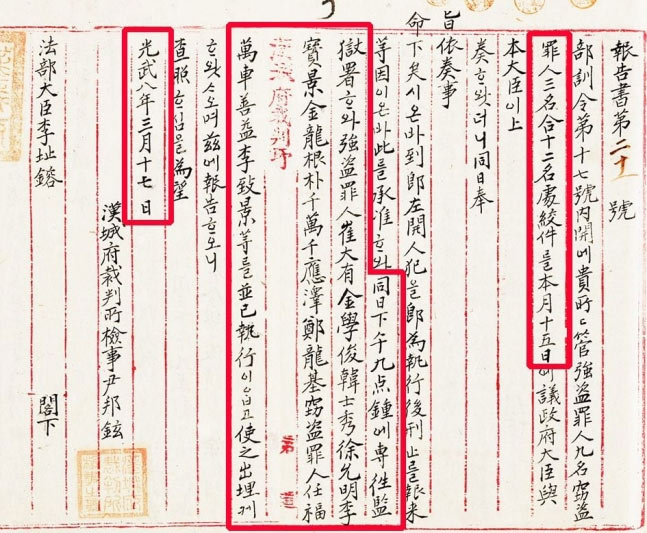 報告書第二十號
部訓令第十七號內開에貴所所管強盜罪人九名窃盜
罪人三名合十二名處絞件을本月十五日에議政府大臣與
本大臣이上
奏ᄒᆞ왓더니同日奉
旨依奏事
命下矣시온바到郎左開人犯을郎為執行後刊止를報来
等因이온바此를承准ᄒᆞ와同日下午九点鍾에専往監
獄署ᄒᆞ와強盜罪人崔大有金學俊韓士秀徐允明李
寶景金龍根朴千萬千應澤鄭龍基窃盜罪人任福
萬車善益李致景等을並已執行이ᄋᆞᆸ고使之出埋케
ᄒᆞ왓ᄉᆞ오며玆에報告ᄒᆞ오니
查照ᄒᆞ심을為望
光武八年三月十七日
漢城府裁判所檢事尹邦鉉
法部大臣李址鎔 閣下